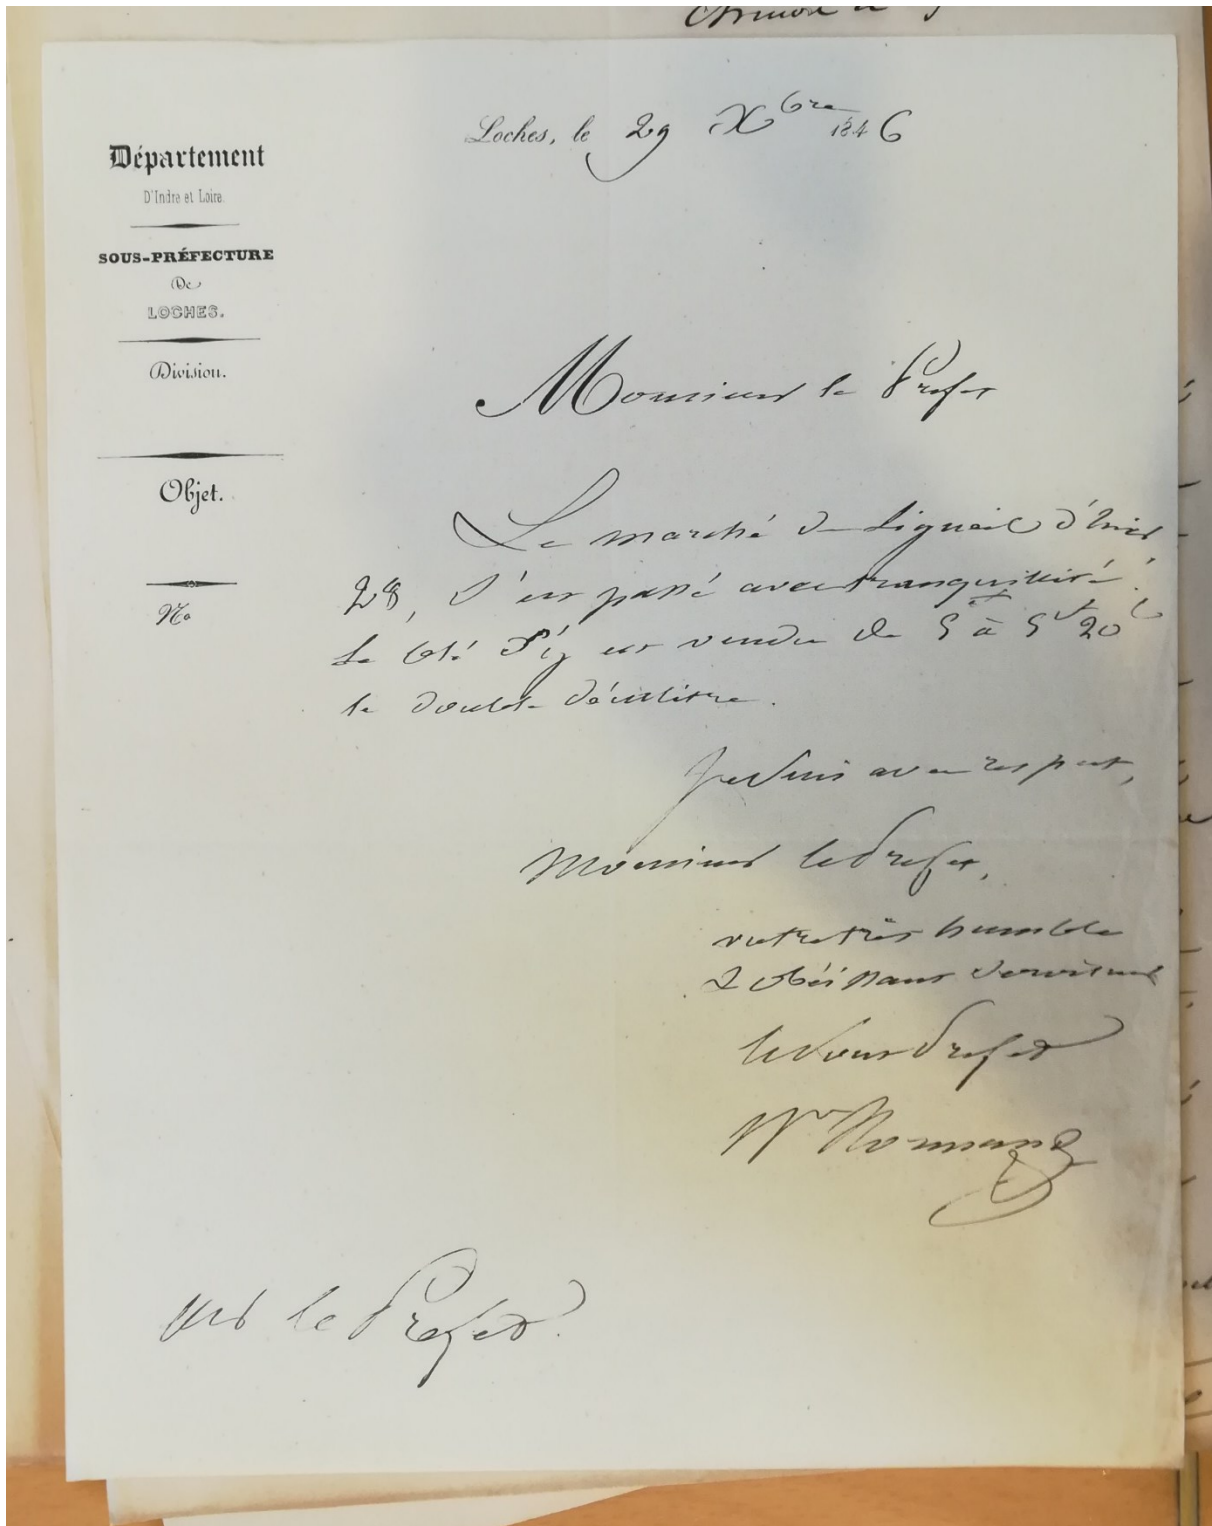 Loches, le 29 Xbre 1846
Département
D'Indre et Loire.
SOUS-PRÉFECTURE
De
LOCHES.
Division.
Objet.
No
Monsieur le Préfet
Le marché de Ligueil d'hier
28, s'est passé avec tranquillité.
Le blé s'y est vendu de 5f à 5f 20c
le double décalitre.
Je suis avec respect,
Monsieur le Préfet,
votre très humble
& obéissant serviteur
le Sous Préfet
Normand
le Préfet.